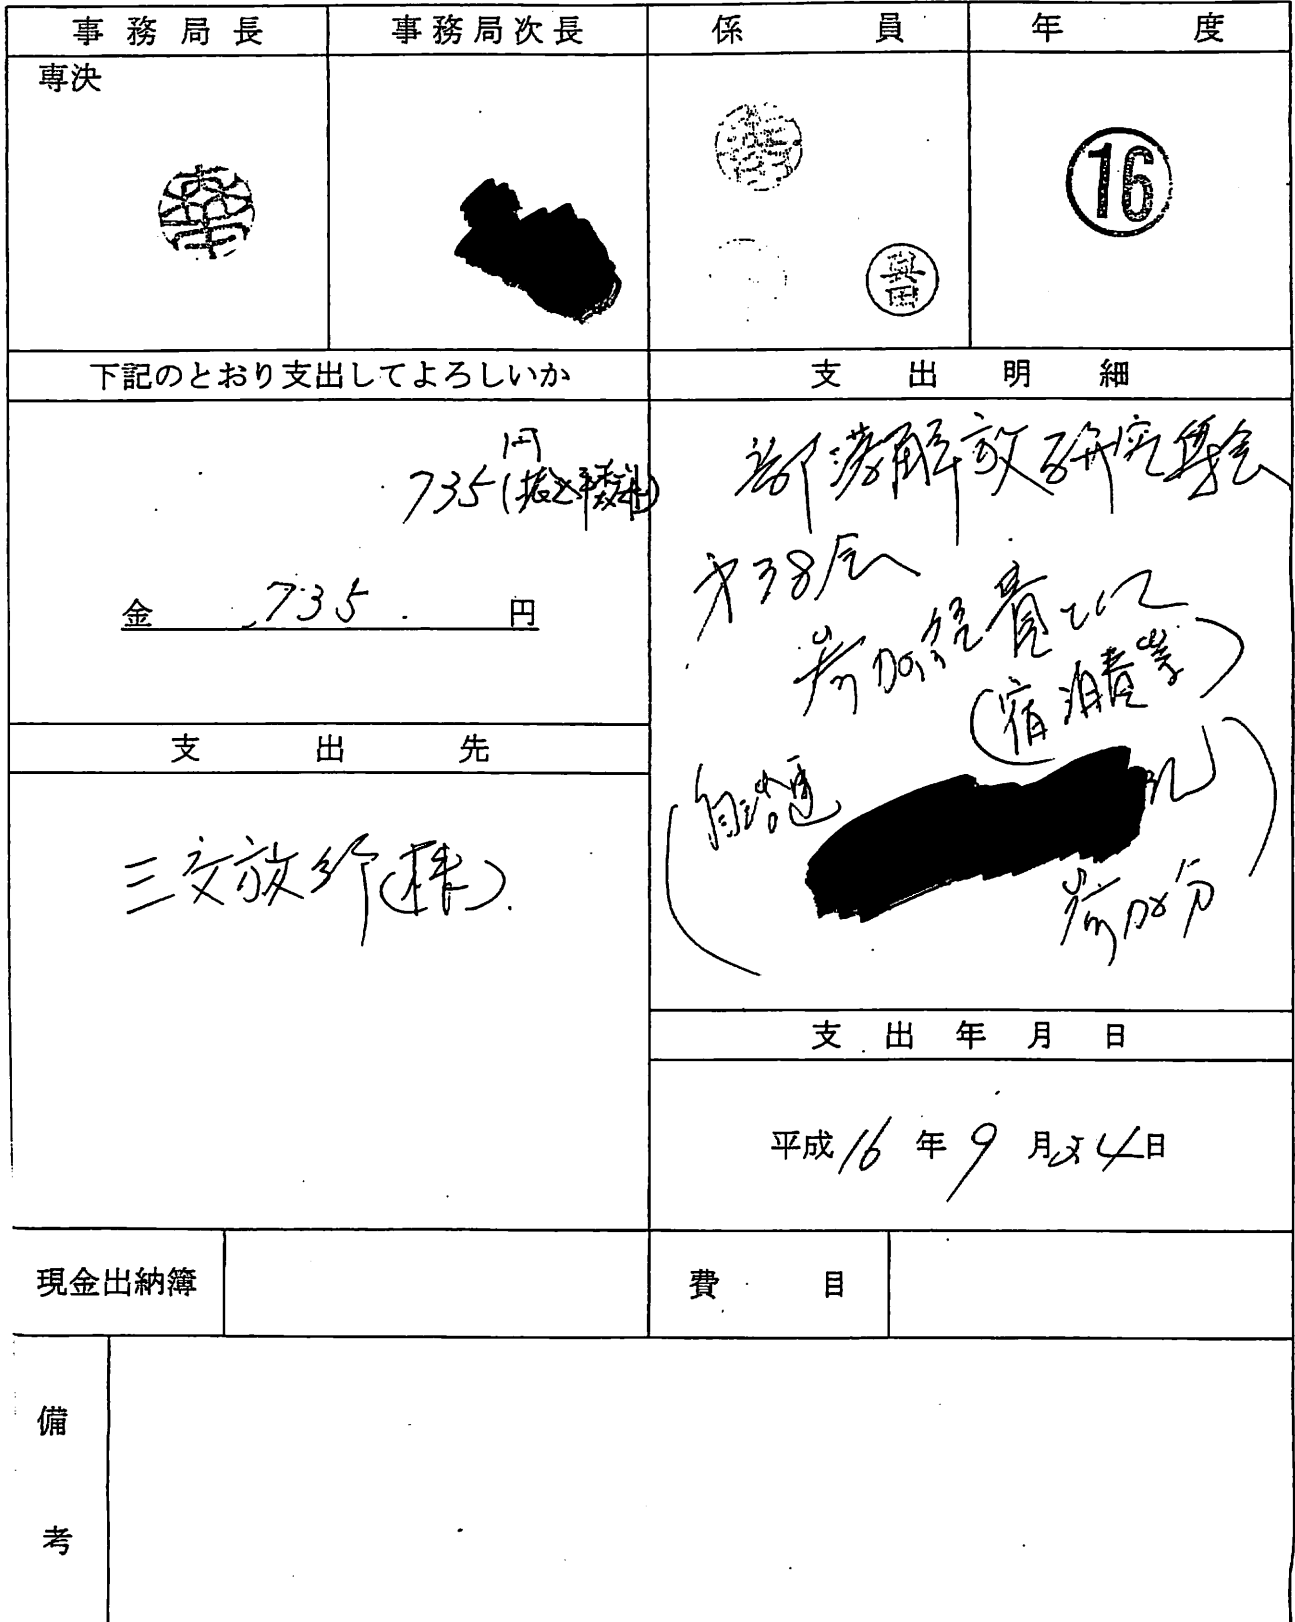 事務局長 事務局次長 係員 年度
専決
16
奥田
下記のとおり支出してよろしいか
円
735(振込手数料)
金 735 円
支出明細
部落解放研究集会
第38回
参加経費として
(宿泊費等)
(自治連
参加分
支出先
三交旅行(様)
支出年月日
平成16年9月24日
現金出納簿
費目
備考